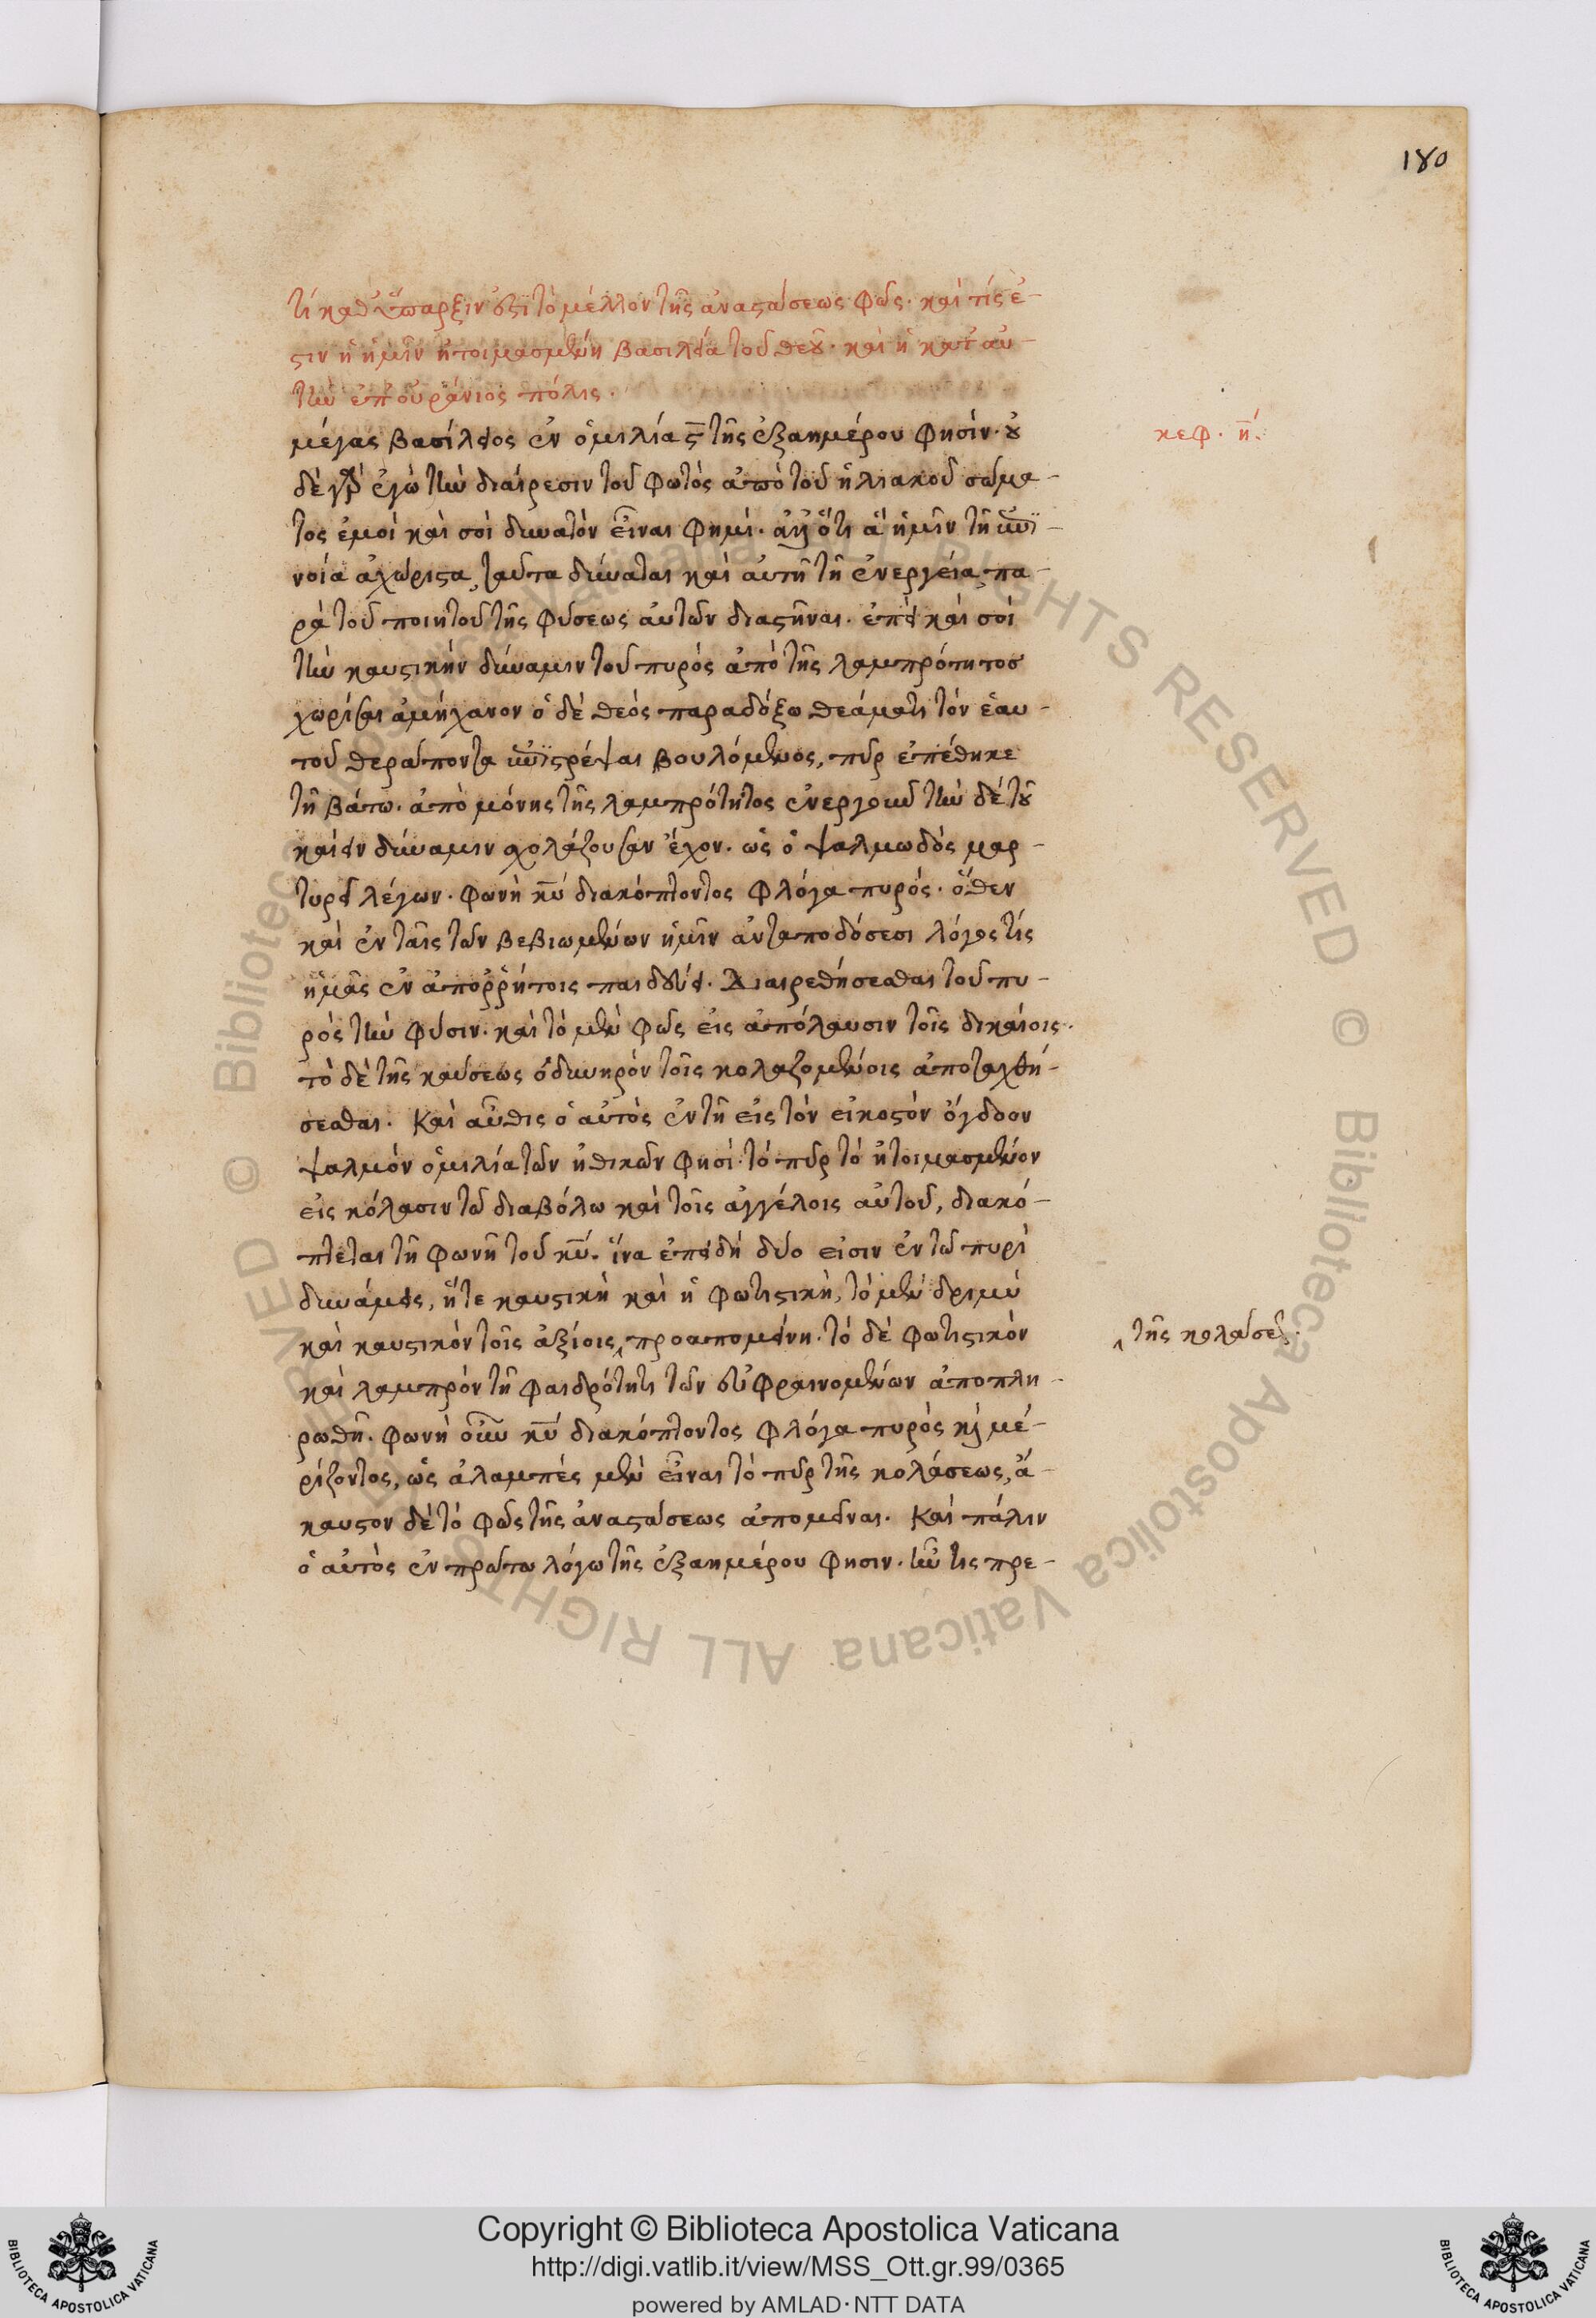 180
τί καθ' ὕπαρξιν ἐστὶ τὸ μέλλον τῆς ἀναστάσεως φῶς. καὶ τίς ἐ-
στιν ἡ ἡμῖν ἡτοιμασμένη βασιλεία τοῦ θεοῦ. καὶ ἡ κατ' αὐ-
τὴν ἐπουράνιος πόλις.
κεφ. η.
μέγας βασίλειος ἐν ὁμιλία ς τῆς ἑξαημέρου φησίν. οὐ
δὲ γὰρ ἐγὼ τὴν διαίρεσιν τοῦ φωτὸς ἀπὸ τοῦ ἡλιακοῦ σώμα-
τος ἐμοὶ καὶ σοὶ δυνατὸν εἶναι φημί. ἀλλ' ὅτι ἃ ἡμῖν τῆ ἐπι-
νοία ἀχώριστα, ταῦτα δύναται καὶ αὐτῆ τῆ ἐνεργεία, πα-
ρὰ τοῦ ποιητοῦ τῆς φύσεως αὐτῶν διαστῆναι. ἐπεὶ καὶ σοὶ
τὴν καυστικὴν δύναμιν τοῦ πυρὸς ἀπὸ τῆς λαμπρότητος
χωρίσαι ἀμήχανον ὁ δὲ θεὸς παραδόξω θεάματι τὸν ἑαυ-
τοῦ θεράποντα ἐπιστρέψαι βουλόμενος, πῦρ ἐπέθηκε
τῆ βάτω. ἀπὸ μόνης τῆς λαμπρότητος ἐνεργοῦν τὴν δὲ τοῦ
καίειν δύναμιν σχολάζουσαν ἔχον. ὡς ὁ ψαλμωδὸς μαρ-
τυρεῖ λέγων. φωνὴ κυ διακόπτοντος φλόγα πυρός. ὅθεν
καὶ ἐν ταῖς τῶν βεβιωμένων ἡμῖν ἀνταποδόσεσι λόγος τίς
ἡμᾶς ἐν ἀπορρήτοις παιδεύει. διαιρεθήσεσθαι τοῦ πυ-
ρὸς τὴν φύσιν. καὶ τὸ μὲν φῶς εἰς ἀπόλαυσιν τοῖς δικαίοις.
τὸ δὲ τῆς καύσεως ὀδυνηρὸν τοῖς κολαζομένοις ἀποταχθή-
σεσθαι. Καὶ αὖθις ὁ αὐτὸς ἐν τῆ εἰς τὸν εἰκοστὸν ὄγδοον
ψαλμὸν ὁμιλία τῶν ἠθικῶν φησί. τὸ πῦρ τὸ ἡτοιμασμένον
εἰς κόλασιν τῶ διαβόλω καὶ τοῖς ἀγγέλοις αὐτοῦ, διακό-
πτεται τῆ φωνῆ τοῦ κυ. ἵνα ἐπειδὴ δύο εἰσιν ἐν τῶ πυρὶ
δυνάμεις, ἥτε καυστικὴ καὶ ἡ φωτιστικὴ, τὸ μὲν δριμὺ
καὶ καυστικὸν τοῖς ἀξίοις, προσαπομείνη. τὸ δὲ φωτιστικὸν
τῆς κολάσεως.
καὶ λαμπρὸν τῆ φαιδρότητι τῶν εὐφραινομένων ἀποπλη-
ρωθῆ. φωνὴ οὖν κυ διακόπτοντος φλόγα πυρὸς καὶ με-
ρίζοντος, ὡς ἀλαμπὲς μὲν εἶναι τὸ πῦρ τῆς κολάσεως, ἄ-
καυστον δὲ τὸ φῶς τῆς ἀναστάσεως ἀπομεῖναι. Καὶ πάλιν
ὁ αὐτὸς ἐν πρώτω λόγω τῆς ἑξαημέρου φησιν. ἦν τις πρε-
Copyright © Biblioteca Apostolica Vaticana
http://digi.vatlib.it/view/MSS_Ott.gr.99/0365
powered by AMLAD·NTT DATA